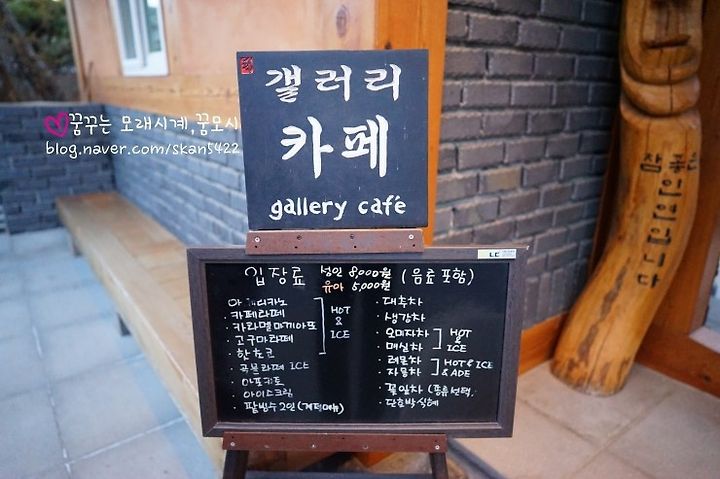 갤러리
카페
gallery café
꿈꾸는 모래시계,꿈모시
blog.naver.com/skan5422
입장료 성인 8,000원 (음료 포함)
유아 5,000원
아메리카노
· 카페라떼
· 카라멜마끼아또
· 고구마라떼
· 핫초코
HOT
&
ICE
· 곡물라떼 ICE
· 아포카토
· 아이스크림
· 팥빙수2인(계절메뉴)
· 대추차
· 생강차
· 오미자차
· 매실차
HOT
&
ICE
· 레몬차
· 자몽차
HOT & ICE
& ADE
· 꽃잎차 (종류선택,
· 단호박식혜
참 좋은
인연입니다